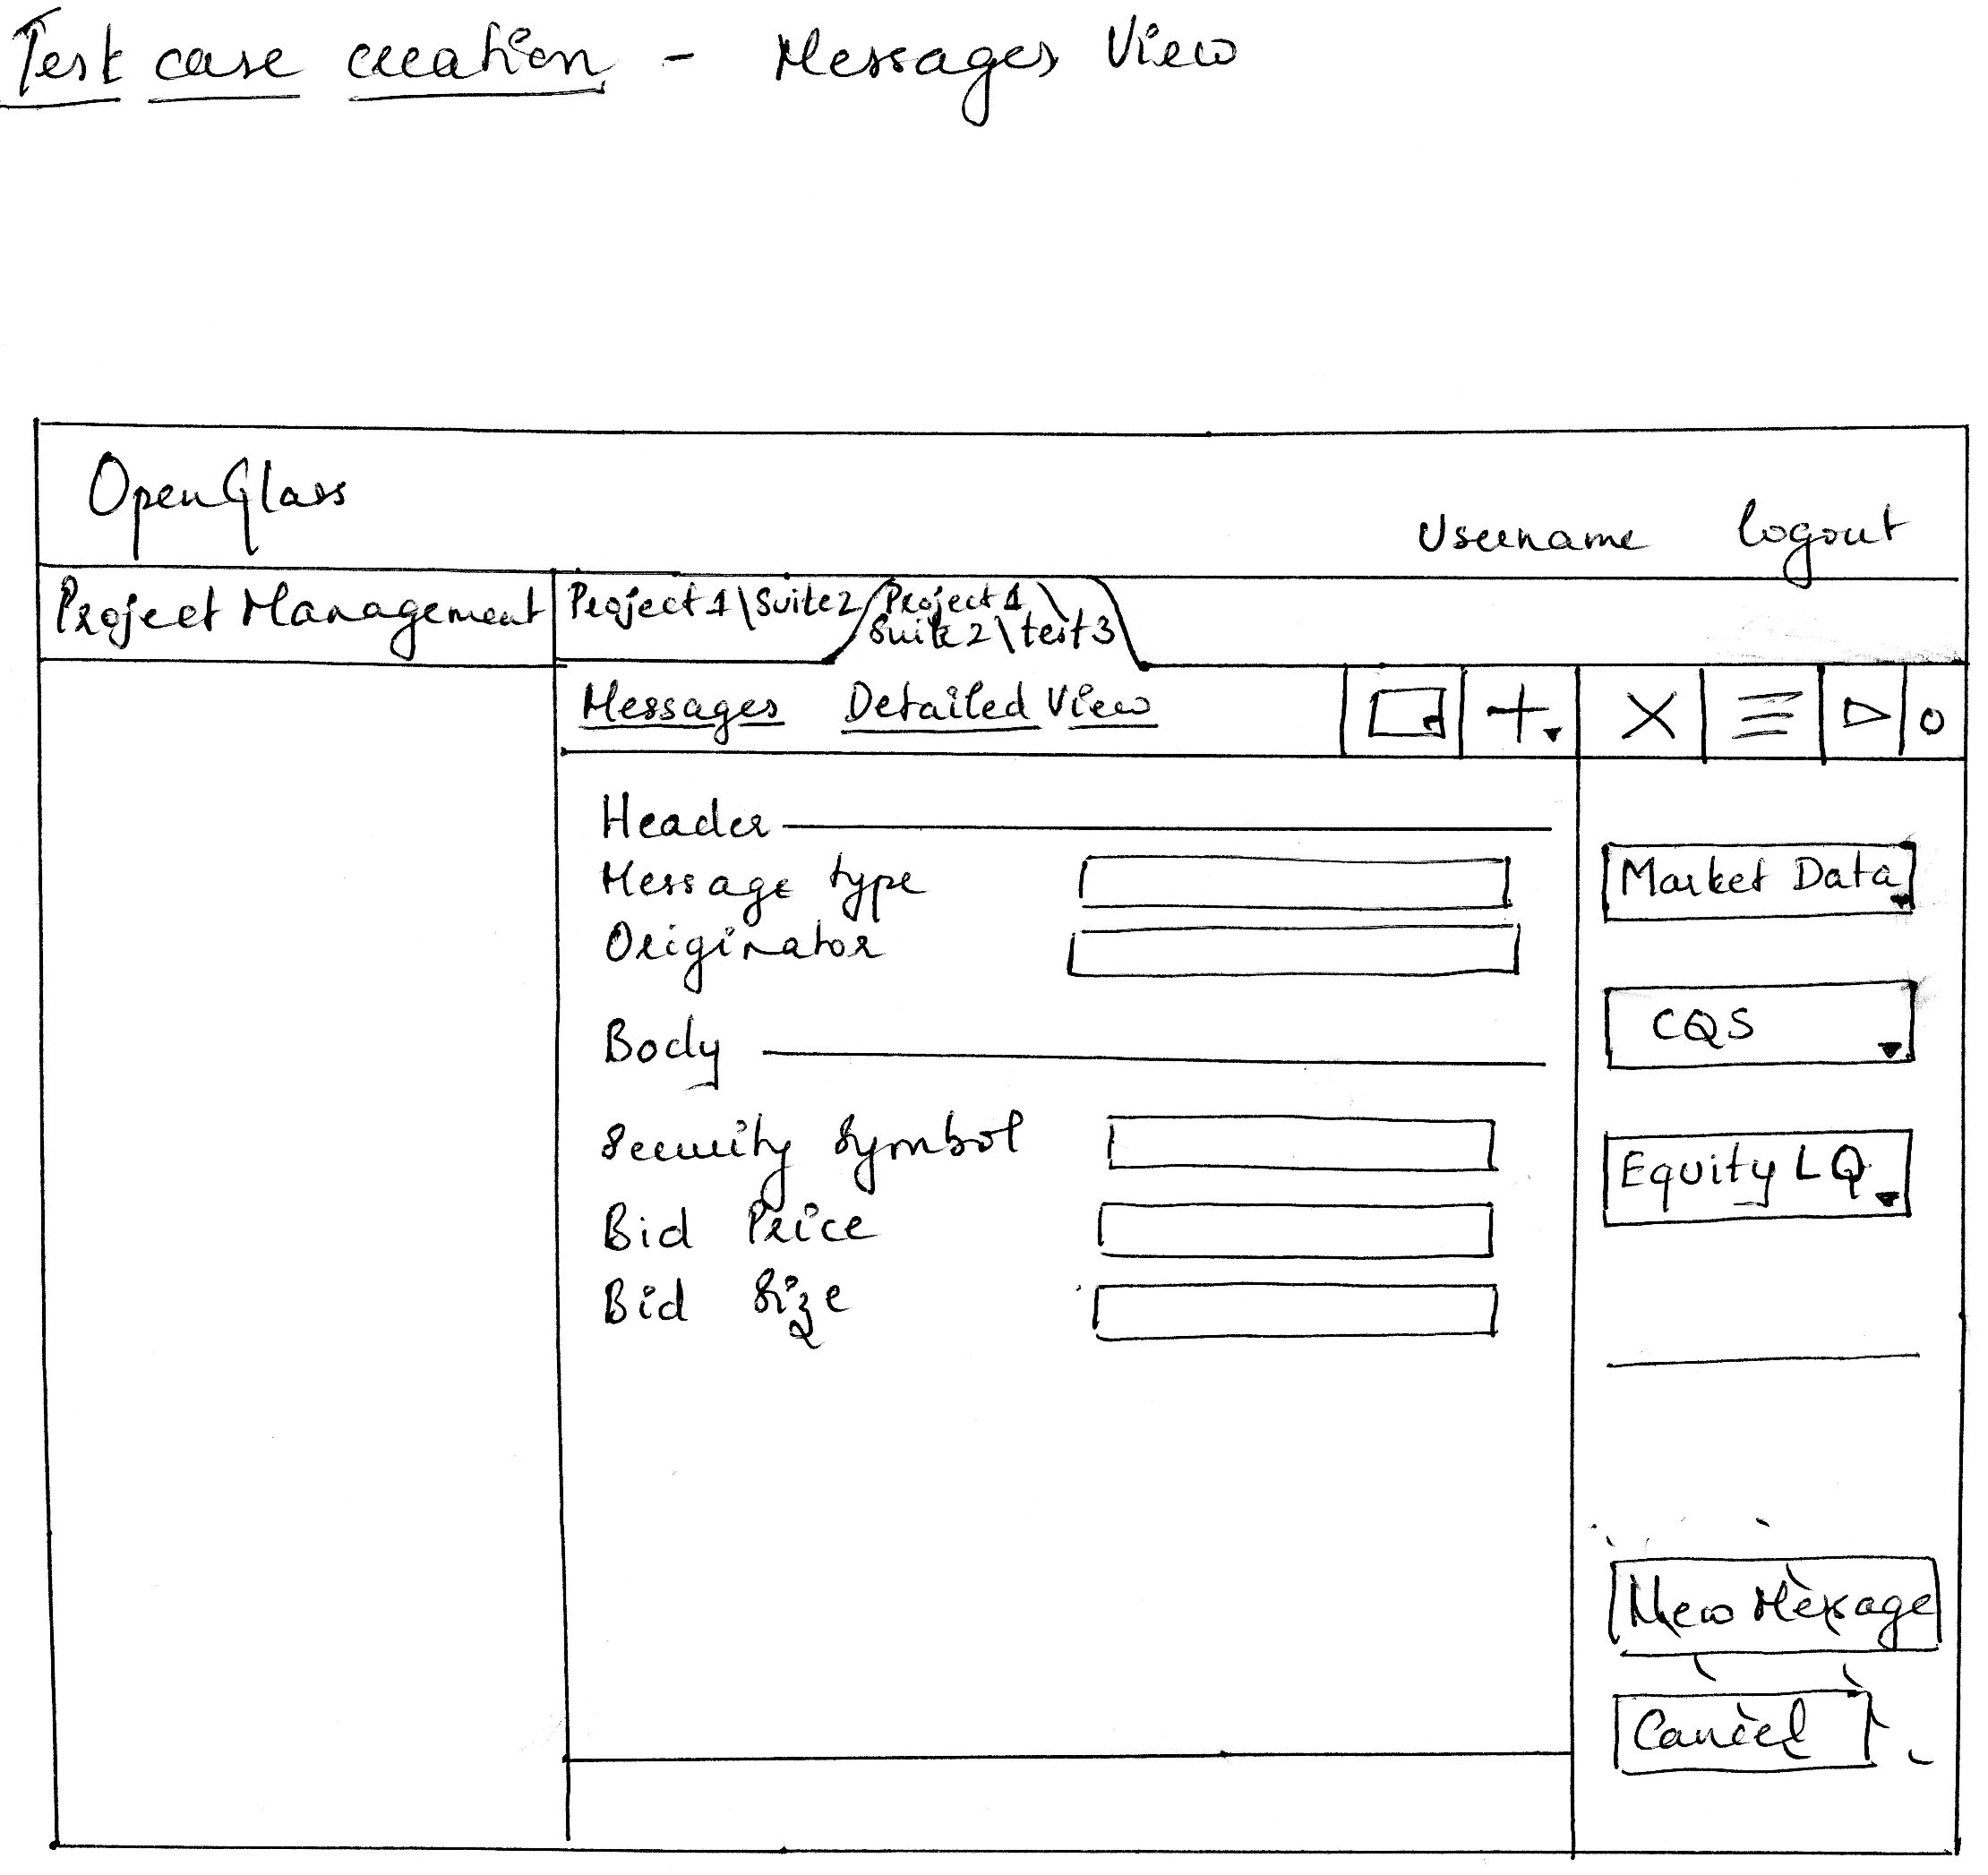 Test case creation - Messages View
OpenGlass
Username logout
Project Management
Project1\Suite2
Project1\
Suite2\test3
Messages Detailed View
Header
Message type
Originator
Body
Security Symbol
Bid Price
Bid Size
Market Data
CQS
Equity LQ
New Message
Cancel